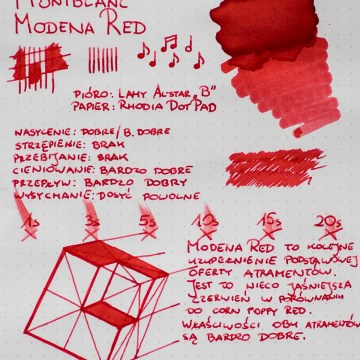 MONTBLANC
MODENA RED
PIÓRO: LAMY ALSTAR "B"
PAPIER: RHODIA DOTPAD
NASYCENIE: DOBRE/B. DOBRE
STRZĘPIENIE: BRAK
PRZEBIJANIE: BRAK
CIENIOWANIE: BARDZO DOBRE
PRZEPŁYW: BARDZO DOBRY
WYSYCHANIE: DOSYĆ POWOLNE
1s 3s 5s 10s 15s 20s
MODENA RED TO KOLEJNE
UZUPEŁNIENIE PODSTAWOWEJ
OFERTY ATRAMENTÓW.
JEST TO NIECO JAŚNIEJSZA
CZERWIEŃ W PORÓWNANIU
DO CORN POPPY RED.
WŁAŚCIWOŚCI OBU ATRAMENTÓW
SĄ BARDZO DOBRE.